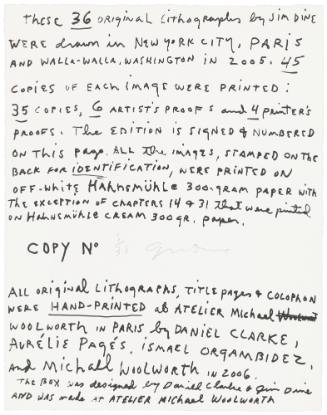 These 36 original lithographs by Jim Dine
were drawn in New York City, Paris
and Walla-Walla, Washington in 2005. 45
copies of each image were printed:
35 copies, 6 artist's proofs and 4 printer's
proofs. The edition is signed & numbered
on this page. All the images, stamped on the
back for identification, were printed on
off-white Hahnemühle 300-gram paper with
the exception of chapters 14 & 31 that were printed
on Hahnemühle cream 300 gr. paper.
Copy Nº
All original lithographs, title pages & colophon
were hand-printed at Atelier Michael
Woolworth in Paris by Daniel Clarke,
Aurélie Pagès, Ismael Orgambidez,
and Michael Woolworth in 2006.
The box was designed by Daniel Clarke & Jim Dine
and was made at Atelier Michael Woolworth